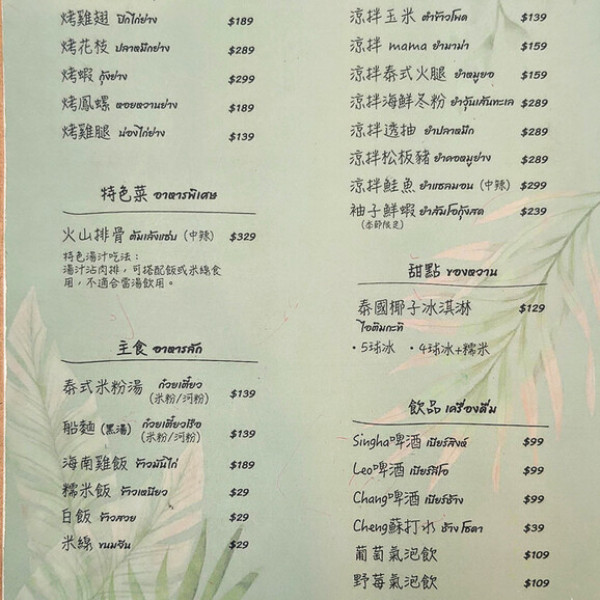 烤雞翅 ปีกไก่ย่าง $189
烤花枝 ปลาหมึกย่าง $289
烤蝦 กุ้งย่าง $299
烤鳳螺 หอยหวานย่าง $189
烤雞腿 น่องไก่ย่าง $139
特色菜 อาหารพิเศษ
火山排骨 ต้มเล้งแซ่บ (中辣) $329
特色湯汁吃法：
湯汁沾肉排，可搭配飯或米線食
用，不適合當湯飲用。
主食 อาหารหลัก
泰式米粉湯 ก๋วยเตี๋ยว $139
(米粉/河粉)
船麵 (黑湯) ก๋วยเตี๋ยวเรือ $139
(米粉/河粉)
海南雞飯 ข้าวมันไก่ $189
糯米飯 ข้าวเหนียว $29
白飯 ข้าวสวย $29
米線 ขนมจีน $29
涼拌玉米 ตำข้าวโพด $139
涼拌 mama ยำมาม่า $159
涼拌泰式火腿 ยำหมูยอ $159
涼拌海鮮冬粉 ยำวุ้นเส้นทะเล $289
涼拌透抽 ยำปลาหมึก $289
涼拌松板豬 ยำคอหมูย่าง $289
涼拌鮭魚 ยำแซลมอน (中辣) $299
柚子鮮蝦 ยำส้มโอกุ้งสด $239
(季節限定)
甜點 ของหวาน
泰國椰子冰淇淋 $129
ไอติมกะทิ
·5球冰 ·4球冰+糯米
飲品 เครื่องดื่ม
Singha啤酒 เบียร์สิงห์ $99
Leo啤酒 เบียร์ลีโอ $99
Chang啤酒 เบียร์ช้าง $99
Cheng蘇打水 ช้าง โซดา $39
葡萄氣泡飲 $109
野莓氣泡飲 $109